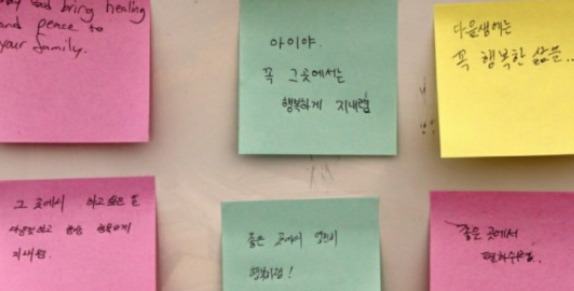 may God bring healing
and peace to
your family.
아이야.
꼭 그곳에서는
행복하게 지내렴
다음생에는
꼭 행복한 삶을..
그 곳에서 하고싶은 것
행복하게
지내렴.
좋은 곳에서 영원히
행복하렴!
좋은 곳에서